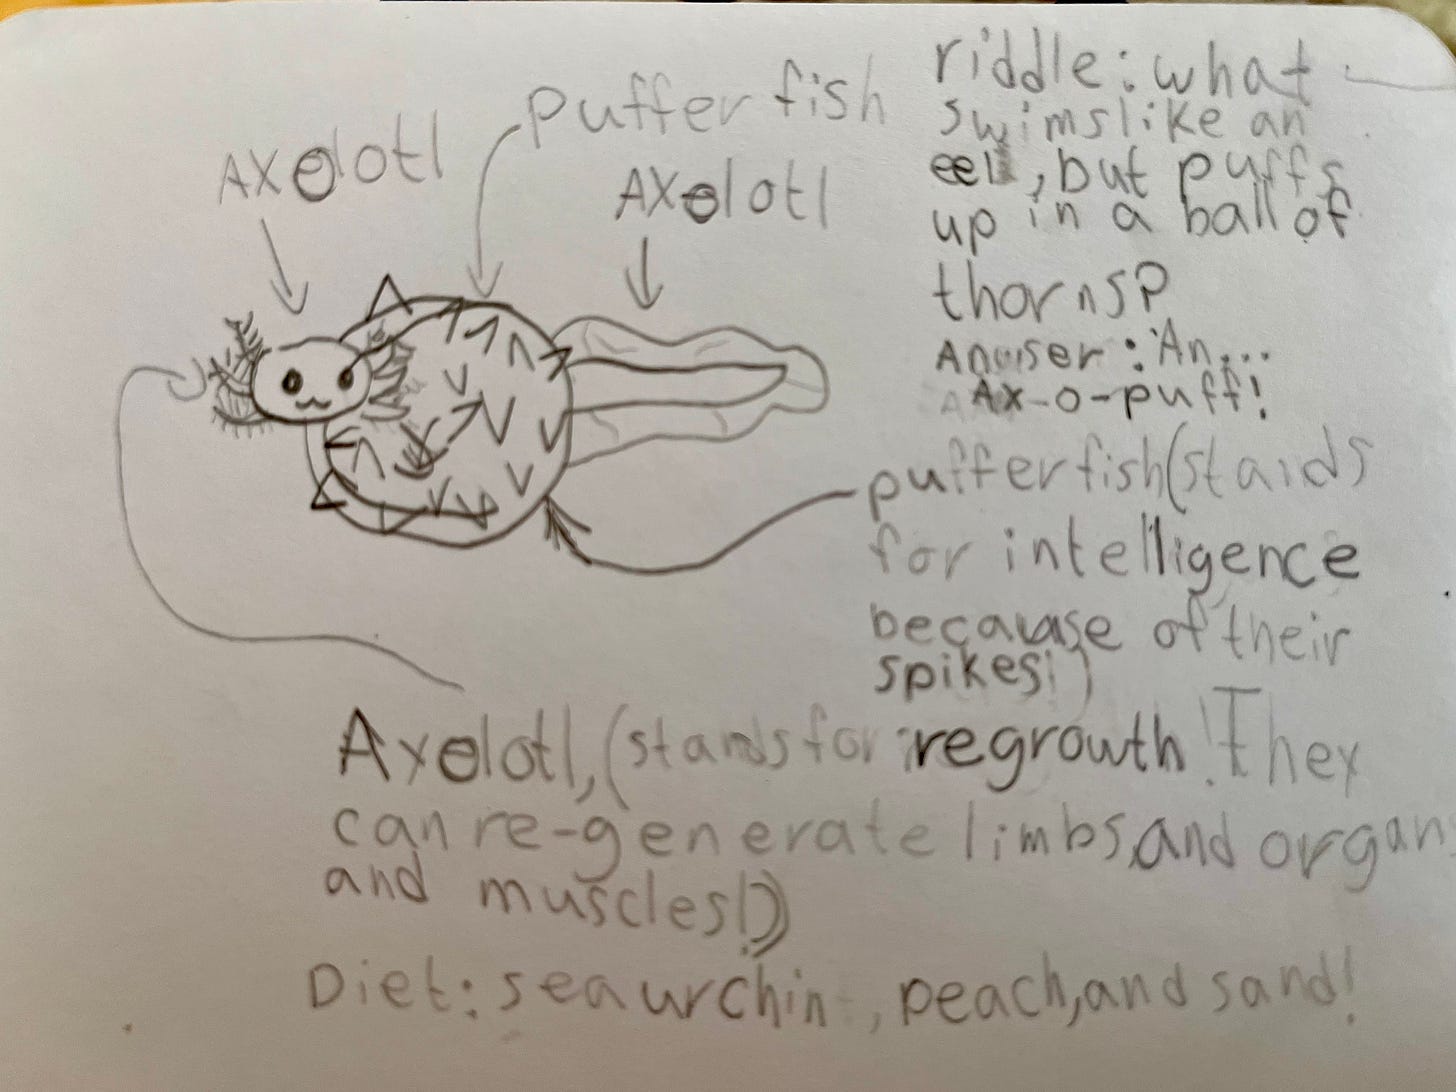 Axolotl
Puffer fish
Axolotl
riddle: what
swims like an
eel, but puffs
up in a ball of
thorns?
Anwser: An...
Ax-o-puff!
pufferfish (stands
for intelligence
because of their
spikes!)
Axolotl, (stands for regrowth! They
can re-generate limbs, and organ
and muscles!)
Diet: sea urchin, peach, and sand!